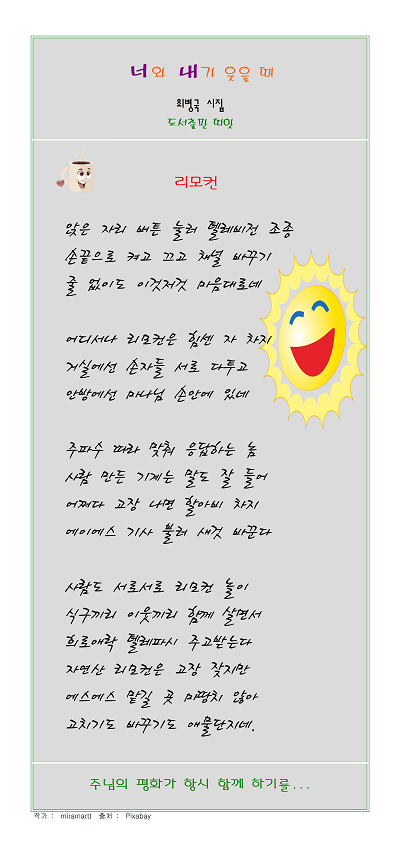 너와 내가 웃을 때
최병국 시집
도서출판 띠앗
리모컨
앉은 자리 버튼 눌러 텔레비전 조종
손끝으로 켜고 끄고 채널 바꾸기
줄 없이도 이것저것 마음대로네
어디서나 리모컨은 힘센 자 차지
거실에선 손자들 서로 다투고
안방에선 마나님 손안에 있네
주파수 따라 맞춰 응답하는 놈
사람 만든 기계는 말도 잘 들어
어쩌다 고장 나면 할아비 차지
에이에스 기사 불러 새것 바꾼다
사람도 서로서로 리모컨 놀이
식구끼리 이웃끼리 함께 살면서
희로애락 텔레파시 주고받는다
자연산 리모컨은 고장 잦지만
에스에스 맡길 곳 마땅치 않아
고치기도 바꾸기도 애물단지네.
주님의 평화가 항시 함께 하기를...
작가 : miramartt 출처 : Pixabay